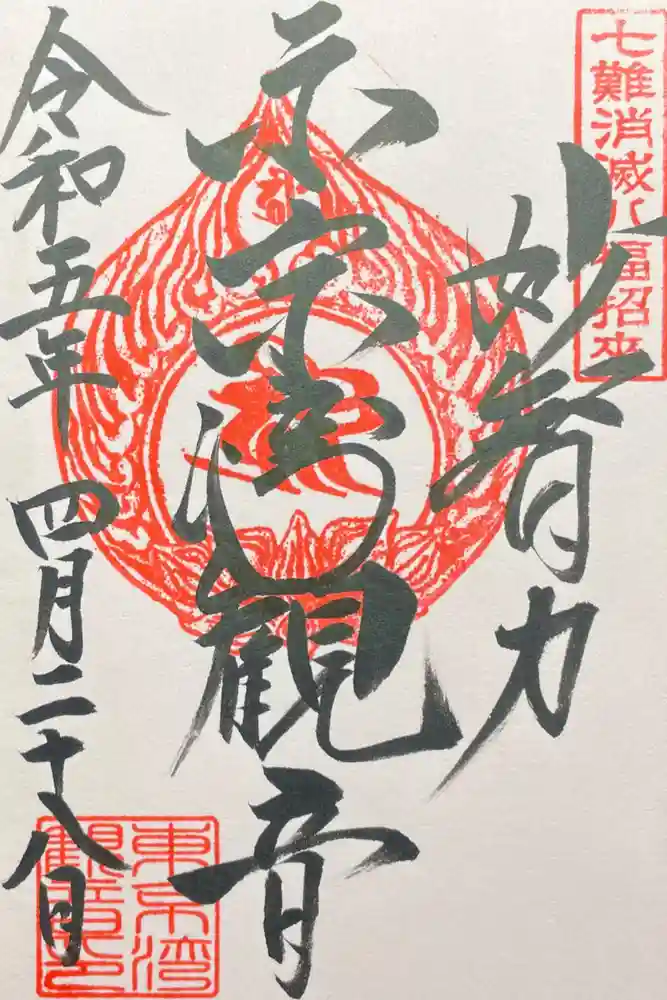 七難消滅八福招來
妙智力
東京湾観音
令和五年四月二十八日
東京湾
観音印